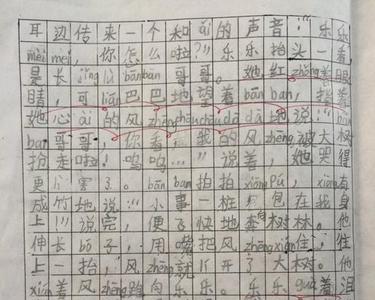 耳边传来一个和ǎi的声音:“乐乐
mèi mei,你怎么啦?”乐乐抬头一看,
是长jǐng lù bān bān哥哥。她红zhǒng着眼
睛,可lián巴巴地望着bān bān,指着
她心ài的风zhēng chōu chōu dā dā地说:“bān
ban哥哥,你看,我的风zhēng被大树
抢走啦!呜呜…”说着,她哭得
更lì害了。bān ban拍拍xiōng pú,xiōng有
成竹地说:“小事一桩!包在我身
上!”说完,便飞快地奔向树林。他
伸长bó子,用嘴把风zhēng xián住,
上一抬,风zhēng就lí开了大树。他
xián着风zhēng跑向乐乐。乐乐guà着泪